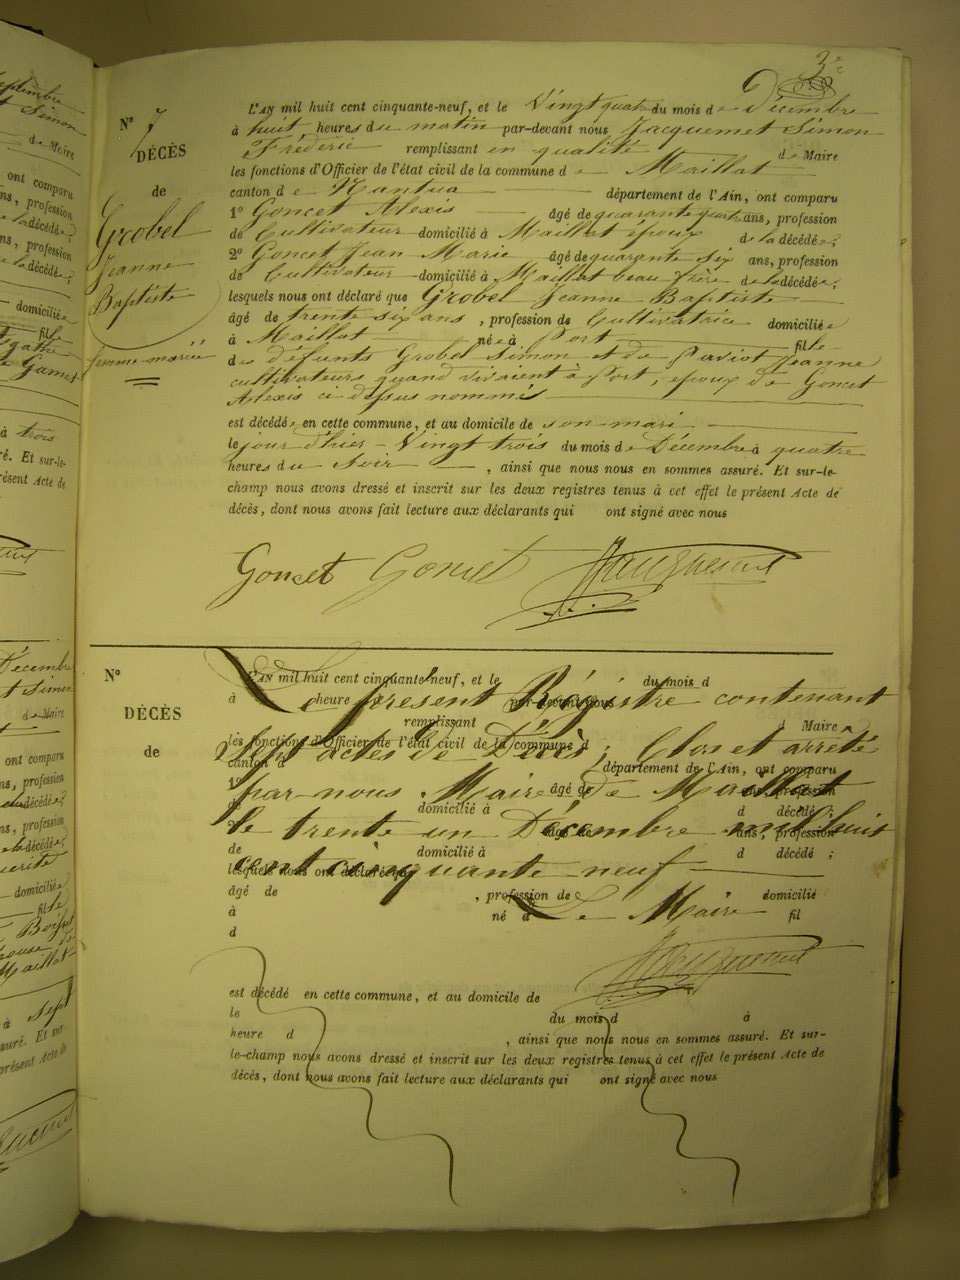 3e
N° 7
DÉCÈS
de
Grobel
Jeanne
Baptiste
femme mariée
L'AN mil huit cent cinquante-neuf, et le Vingt quatre du mois de Décembre
à huit heures du matin par-devant nous Jacquemet Simon
Fréderic remplissant en qualité de Maire
les fonctions d'Officier de l'état civil de la commune de Maillat
canton de Nantua département de l'Ain, ont comparu
1° Goncet Alexis âgé de quarante quatre ans, profession
de Cultivateur domicilié à Maillat epoux de la décédée;
2° Goncet Jean Marie âgé de quarante six ans, profession
de Cultivateur domicilié à Maillat beau frère de la décédée;
lesquels nous ont déclaré que Grobel Jeanne Baptiste
âgé de trente six ans, profession de Cultivatrice domiciliée
à Maillat née à Port fille
des défunts Grobel Simon et de Paviot Jeanne
cultivateurs quand vivaient à Port, epoux de Goncet
Alexis ci dessus nommé
est décédée en cette commune, et au domicile de son mari
le jour d'hier Vingt trois du mois de Décembre à quatre
heures du Soir, ainsi que nous nous en sommes assuré. Et sur-le-
champ nous avons dressé et inscrit sur les deux registres tenus à cet effet le présent Acte de
décès, dont nous avons fait lecture aux déclarants qui ont signé avec nous
Goncet Goncet Jacquemet
N°
DÉCÈS
de
L'AN mil huit cent cinquante-neuf, et le du mois d
à heure d par-devant nous
Le présent Régistre contenant
remplissant d Maire
les fonctions d'Officier de l'état civil de la commune d
Sept actes de Décès, Clos et arrêté
canton d département de l'Ain, ont comparu
1° âgé de ans, profession
par nous Maire de Maillat
de domicilié à d décédé;
2° âgé de ans, profession
le trente un Décembre mil huit
de domicilié à d décédé;
lesquels nous ont déclaré que
cent cinquante neuf
âgé de , profession de domicilié
à né à fil
Le Maire
d
Jacquemet
est décédé en cette commune, et au domicile de
le du mois d à
heure d , ainsi que nous nous en sommes assuré. Et sur-
le-champ nous avons dressé et inscrit sur les deux registres tenus à cet effet le présent Acte de
décès, dont nous avons fait lecture aux déclarants qui ont signé avec nous